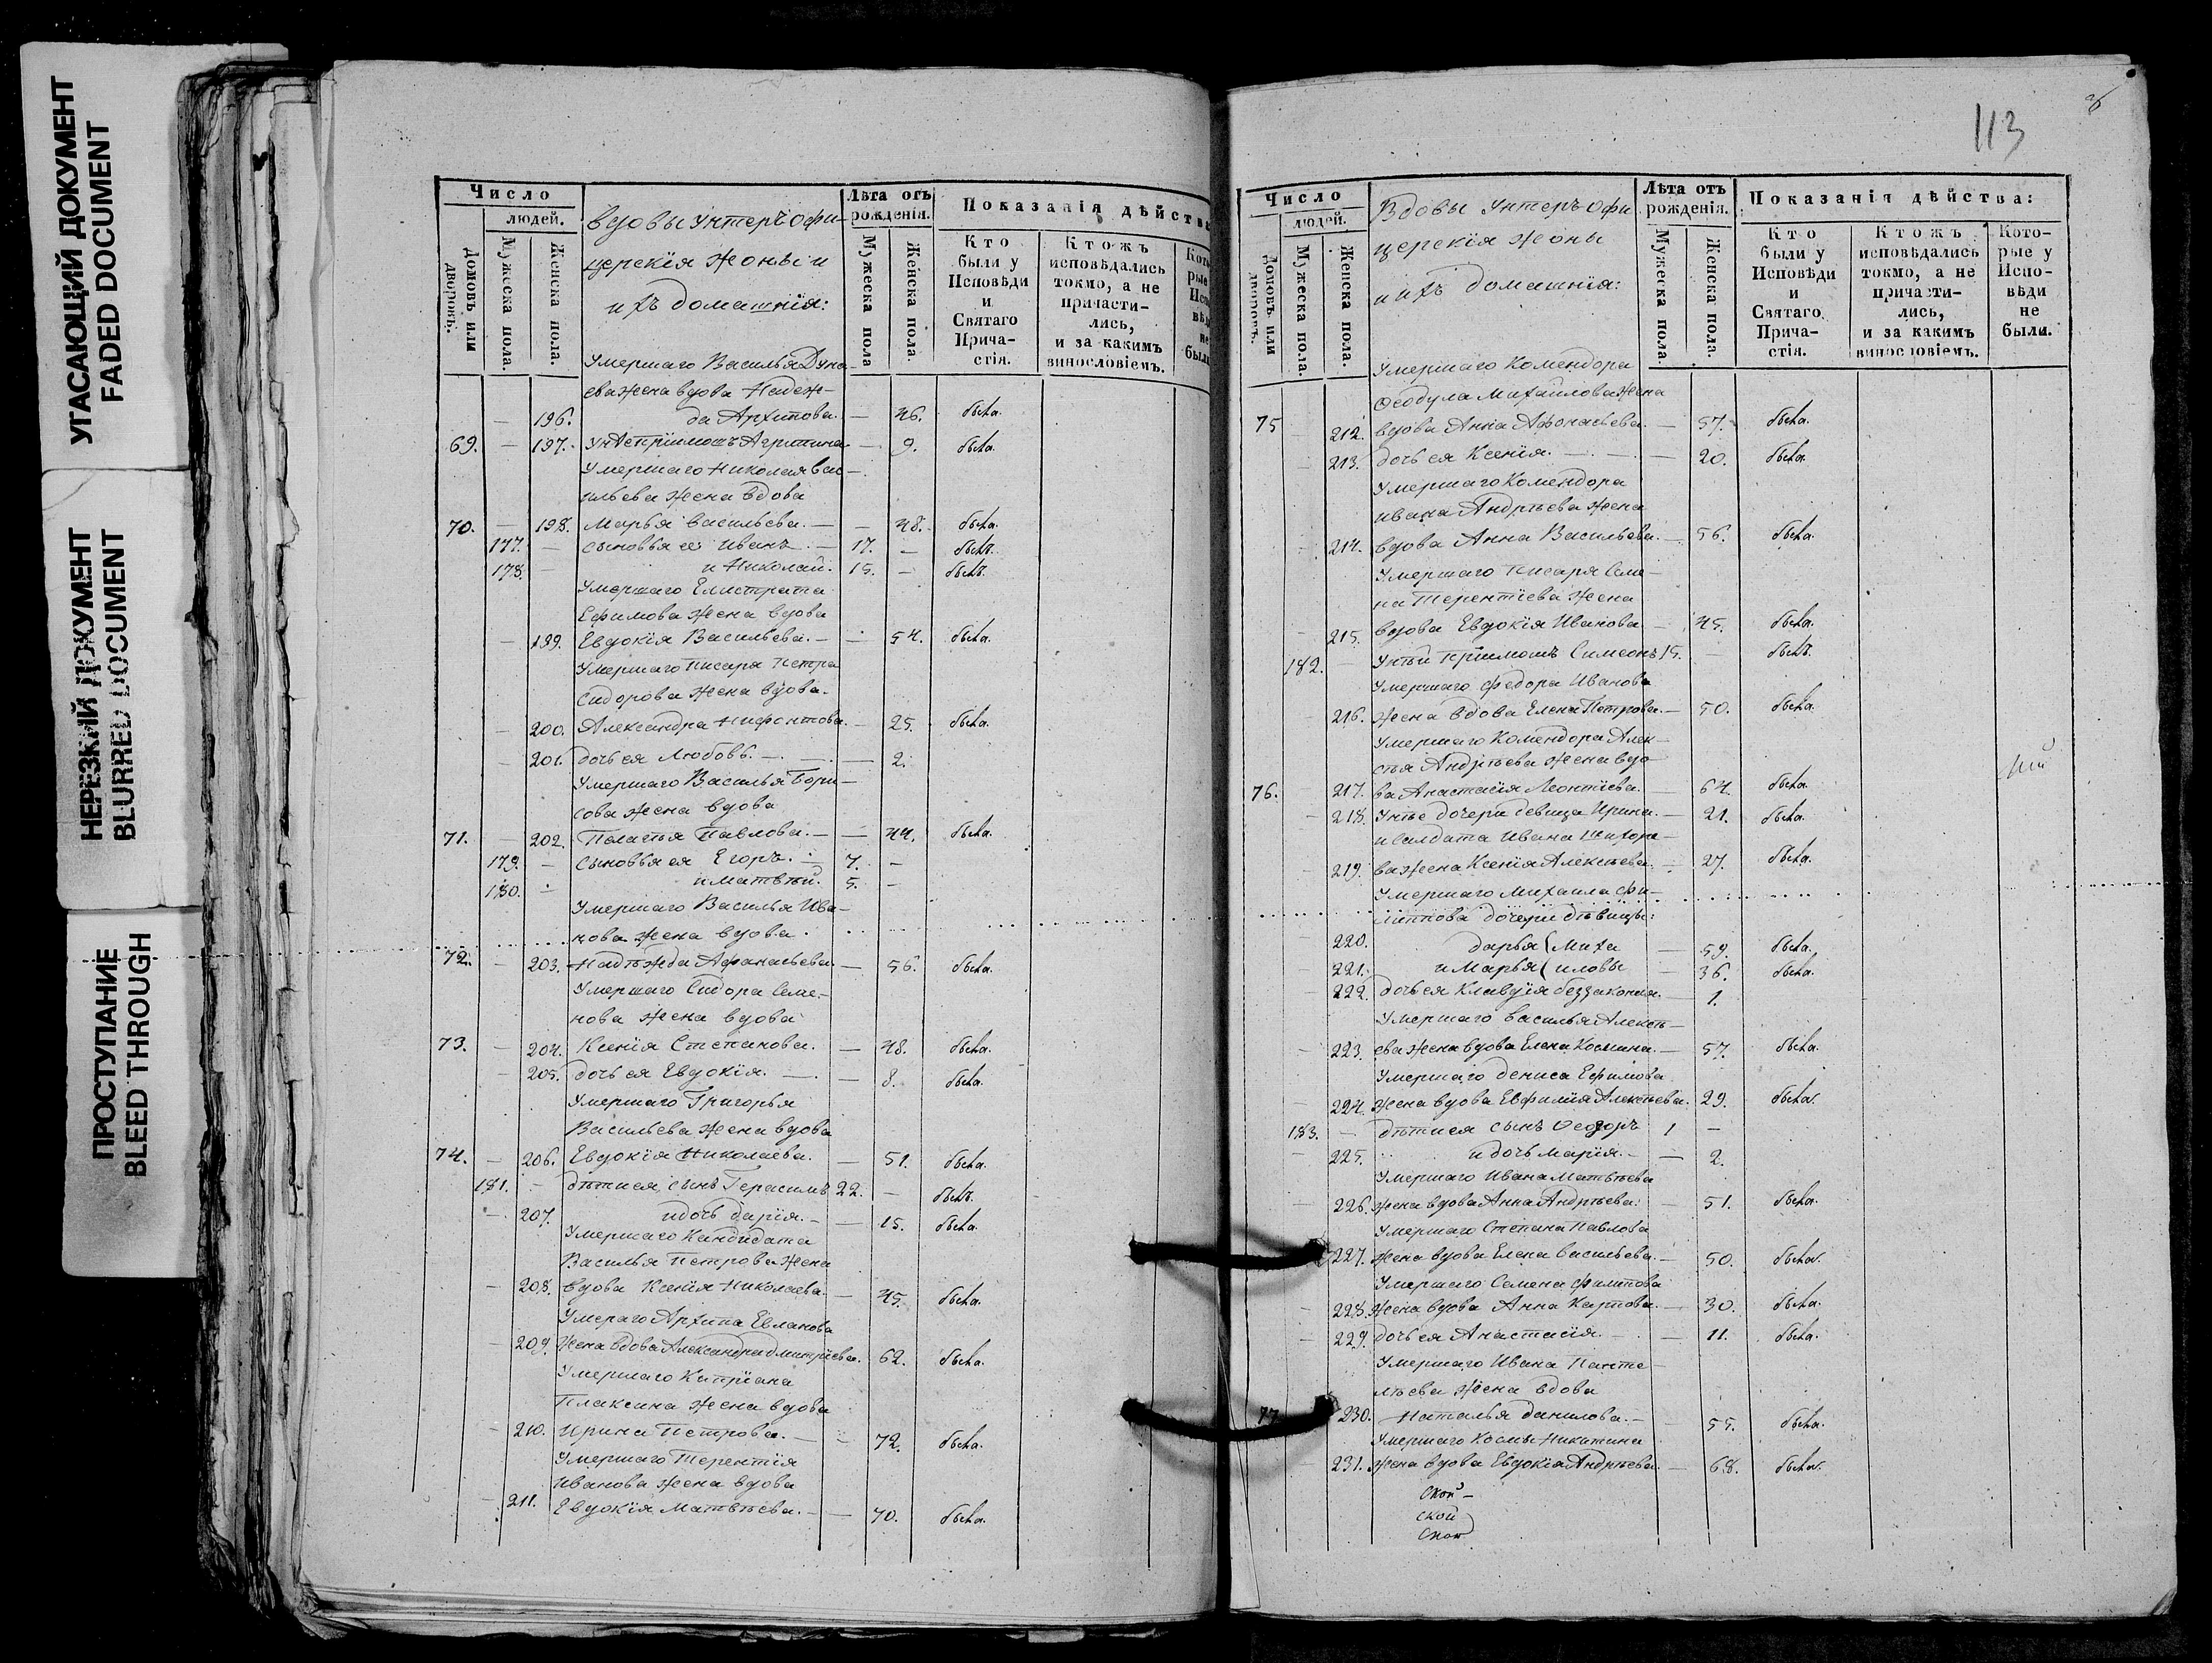 УГАСАЮЩИЙ ДОКУМЕНТ
FADED DOCUMENT
НЕРЕЗКИЙ ДОКУМЕНТ
BLURRED DOCUMENT
ПРОСТУПАНИЕ
BLEED THROUGH
Число
людей.
Домовъ или дворовъ.
Мужеска пола.
Женска пола.
вдовы унтеръ офи-
церскія жоны и
ихъ домашнія:
Лѣта отъ рожденія.
Мужеска пола
Женска пола.
Показанія дѣйства
Кто были у Исповѣди и Святаго Прича-стія.
Ктожъ исповѣдались токмо, а не причасти-лись, и за какимъ винословіемъ.
Умершаго Василья Дуна-
ева жена вдова Надеж-
— 196. да Архипова. — 46. была.
69. — 197. У нѣ Агрипина — 9. была.
Умершаго Николая Вас-
ильева жена вдова
70. — 198. Марья Васильева. — 48. была.
177. — сыновья ее Иванъ — 17. — былъ.
178. — и Николай. 15. — былъ.
Умершаго Елистрата
Ефимова жена вдова
— 199. Евдокія Васильева. — 54. была.
Умершаго писаря Петра
Сидорова жена вдова.
— 200. Александра Нифонтова. — 25. была.
— 201. дочь ея Любовь. — 2.
Умершаго Василья Бори-
сова жена вдова
71. — 202. Пелагья Павлова. — 44. была.
179. — сыновья ея Егоръ. 7. —
180. — и Матвѣй. 5. —
Умершаго Василья Ива-
нова жена вдова
72. — 203. Надѣжда Афанасьева. — 56. была.
Умершаго Сидора Семе-
нова жена вдова
73. — 204. Ксенія Степанова. — 48. была.
— 205. дочь ея Евдокія. — 8. была.
Умершаго Григорья
Васильева жена вдова
74. — 206. Евдокія Николаева. — 51. была.
181. — дѣти ея, сынъ Герасимъ 22. — былъ.
— 207. и дочь Дарія. — 15. была.
Умершаго Кандидата
Василья Петрова жена
— 208. вдова Ксенія Николаева. — 45. была.
Умераго Архипа Евланова
— 209. жена вдова Александра Дмитріева. 62. была.
Умершаго Кипріана
Плаксина жена вдова
— 210. Ирина Петрова. — 72. была.
Умершаго Терентія
Иванова жена вдова
— 211. Евдокія Матвѣева. — 70. была.
113
Число
людей.
Домовъ или дворовъ.
Мужеска пола.
Женска пола.
Вдовы унтеръ офи
церскія жоны
и ихъ домашнія:
Лѣта отъ рожденія.
Мужеска пола.
Женска пола.
Показанія дѣйства:
Кто были у Исповѣди и Святаго Прича-стія.
Ктожъ исповѣдались токмо, а не причасти-лись, и за какимъ винословіемъ.
Кото-рые у Испо-вѣди не были.
Умершаго Комендора
Ѳеодула Михайлова жена
75 — 212. вдова Анна Афонасьева. — 57. была.
— 213. дочь ея Ксенія. — 20. была.
Умершаго Комендора
Ивана Андрѣева жена
— 214. вдова Анна Васильева. — 56. была.
Умершаго писаря Семе-
на Терентіева жена
— 215. вдова Евдокія Иванова. — 45. была.
182. — У нѣй Симеонъ 15. — былъ.
Умершаго Федора Иванова
216. жена вдова Елена Петрова. — 50. была.
Умершаго Комендора Алек-
сѣя Андрѣева жена вдо-
76. — 217. ва Анастасія Леонтіева. — 64. была.
— 218. У нѣе дочери девица Ирина. — 21. была.
и салдата Ивана
— 219. ва жена Ксенія Алексѣева. — 27. была.
Умершаго Михаила Фи-
липпова дочери дѣвицы:
220. Дарья ( Миха — 59. была.
— 221. и Марья ( иловы — 36. была.
— 222. дочь ея Клавдія беззаконая. — 1.
Умершаго Василья Алексѣ-
— 223. ева жена вдова Елена Космина. — 57. была.
Умершаго Дениса Ефимова
— 224. жена вдова Евфимія Алексѣева. 29. была.
183. — дѣти ея сынъ Ѳеодоръ 1 —
— 225. и дочь Марія. — 2.
Умершаго Ивана Матвѣева
— 226. жена вдова Анна Андрѣева. — 51. была.
Умершаго Степана Павлова
227. жена вдова Елена Васильева. — 50. была.
Умершаго Семена Филипова
— 228. жена вдова Анна Карпова. — 30. была.
— 229. дочь ея Анастасія. — 11. была.
Умершаго Ивана Панте-
лѣева жена вдова
77 230. Наталья Данилова. — 55. была.
Умершаго Космы Никитина
— 231. жена вдова Евдокія Андрѣева. — 68. была.